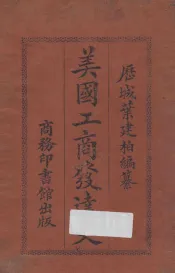 歷城葉建柏編纂
美國工商發達
商務印書館出版